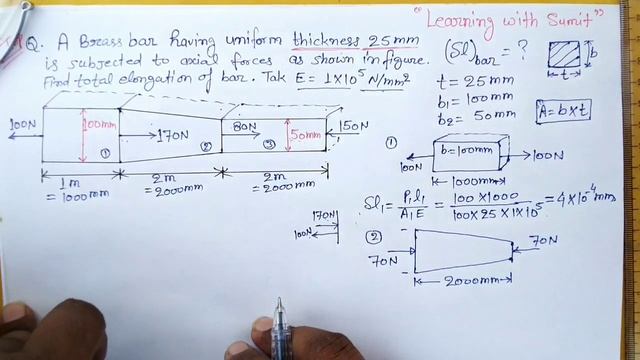 "Learning with Sumit"
Q. A Brass bar having uniform thickness 25mm
is subjected to axial forces as shown in figure.
Find total elongation of bar. Tak E = 1X10⁵ N/mm²
(Sl)bar = ?
b
t
t = 25mm
b₁ = 100mm
b₂ = 50mm
A = b x t
100N
100mm
170N
80N
50mm
150N
① ② ③
1m
= 1000mm
2m
= 2000mm
2m
= 2000mm
①
100N
b = 100mm
100N
1000mm
Sl₁ = P₁l₁ / A₁E = 100 X 1000 / 100 X 25 X 1X10⁵ = 4X10⁻⁴mm
170N
100N
②
70N
70N
2000mm